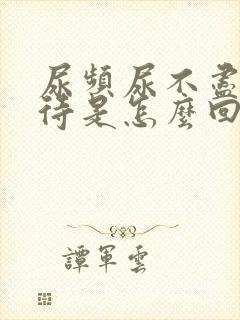 尿頻尿不盡
待是怎麼回
譚軍雲